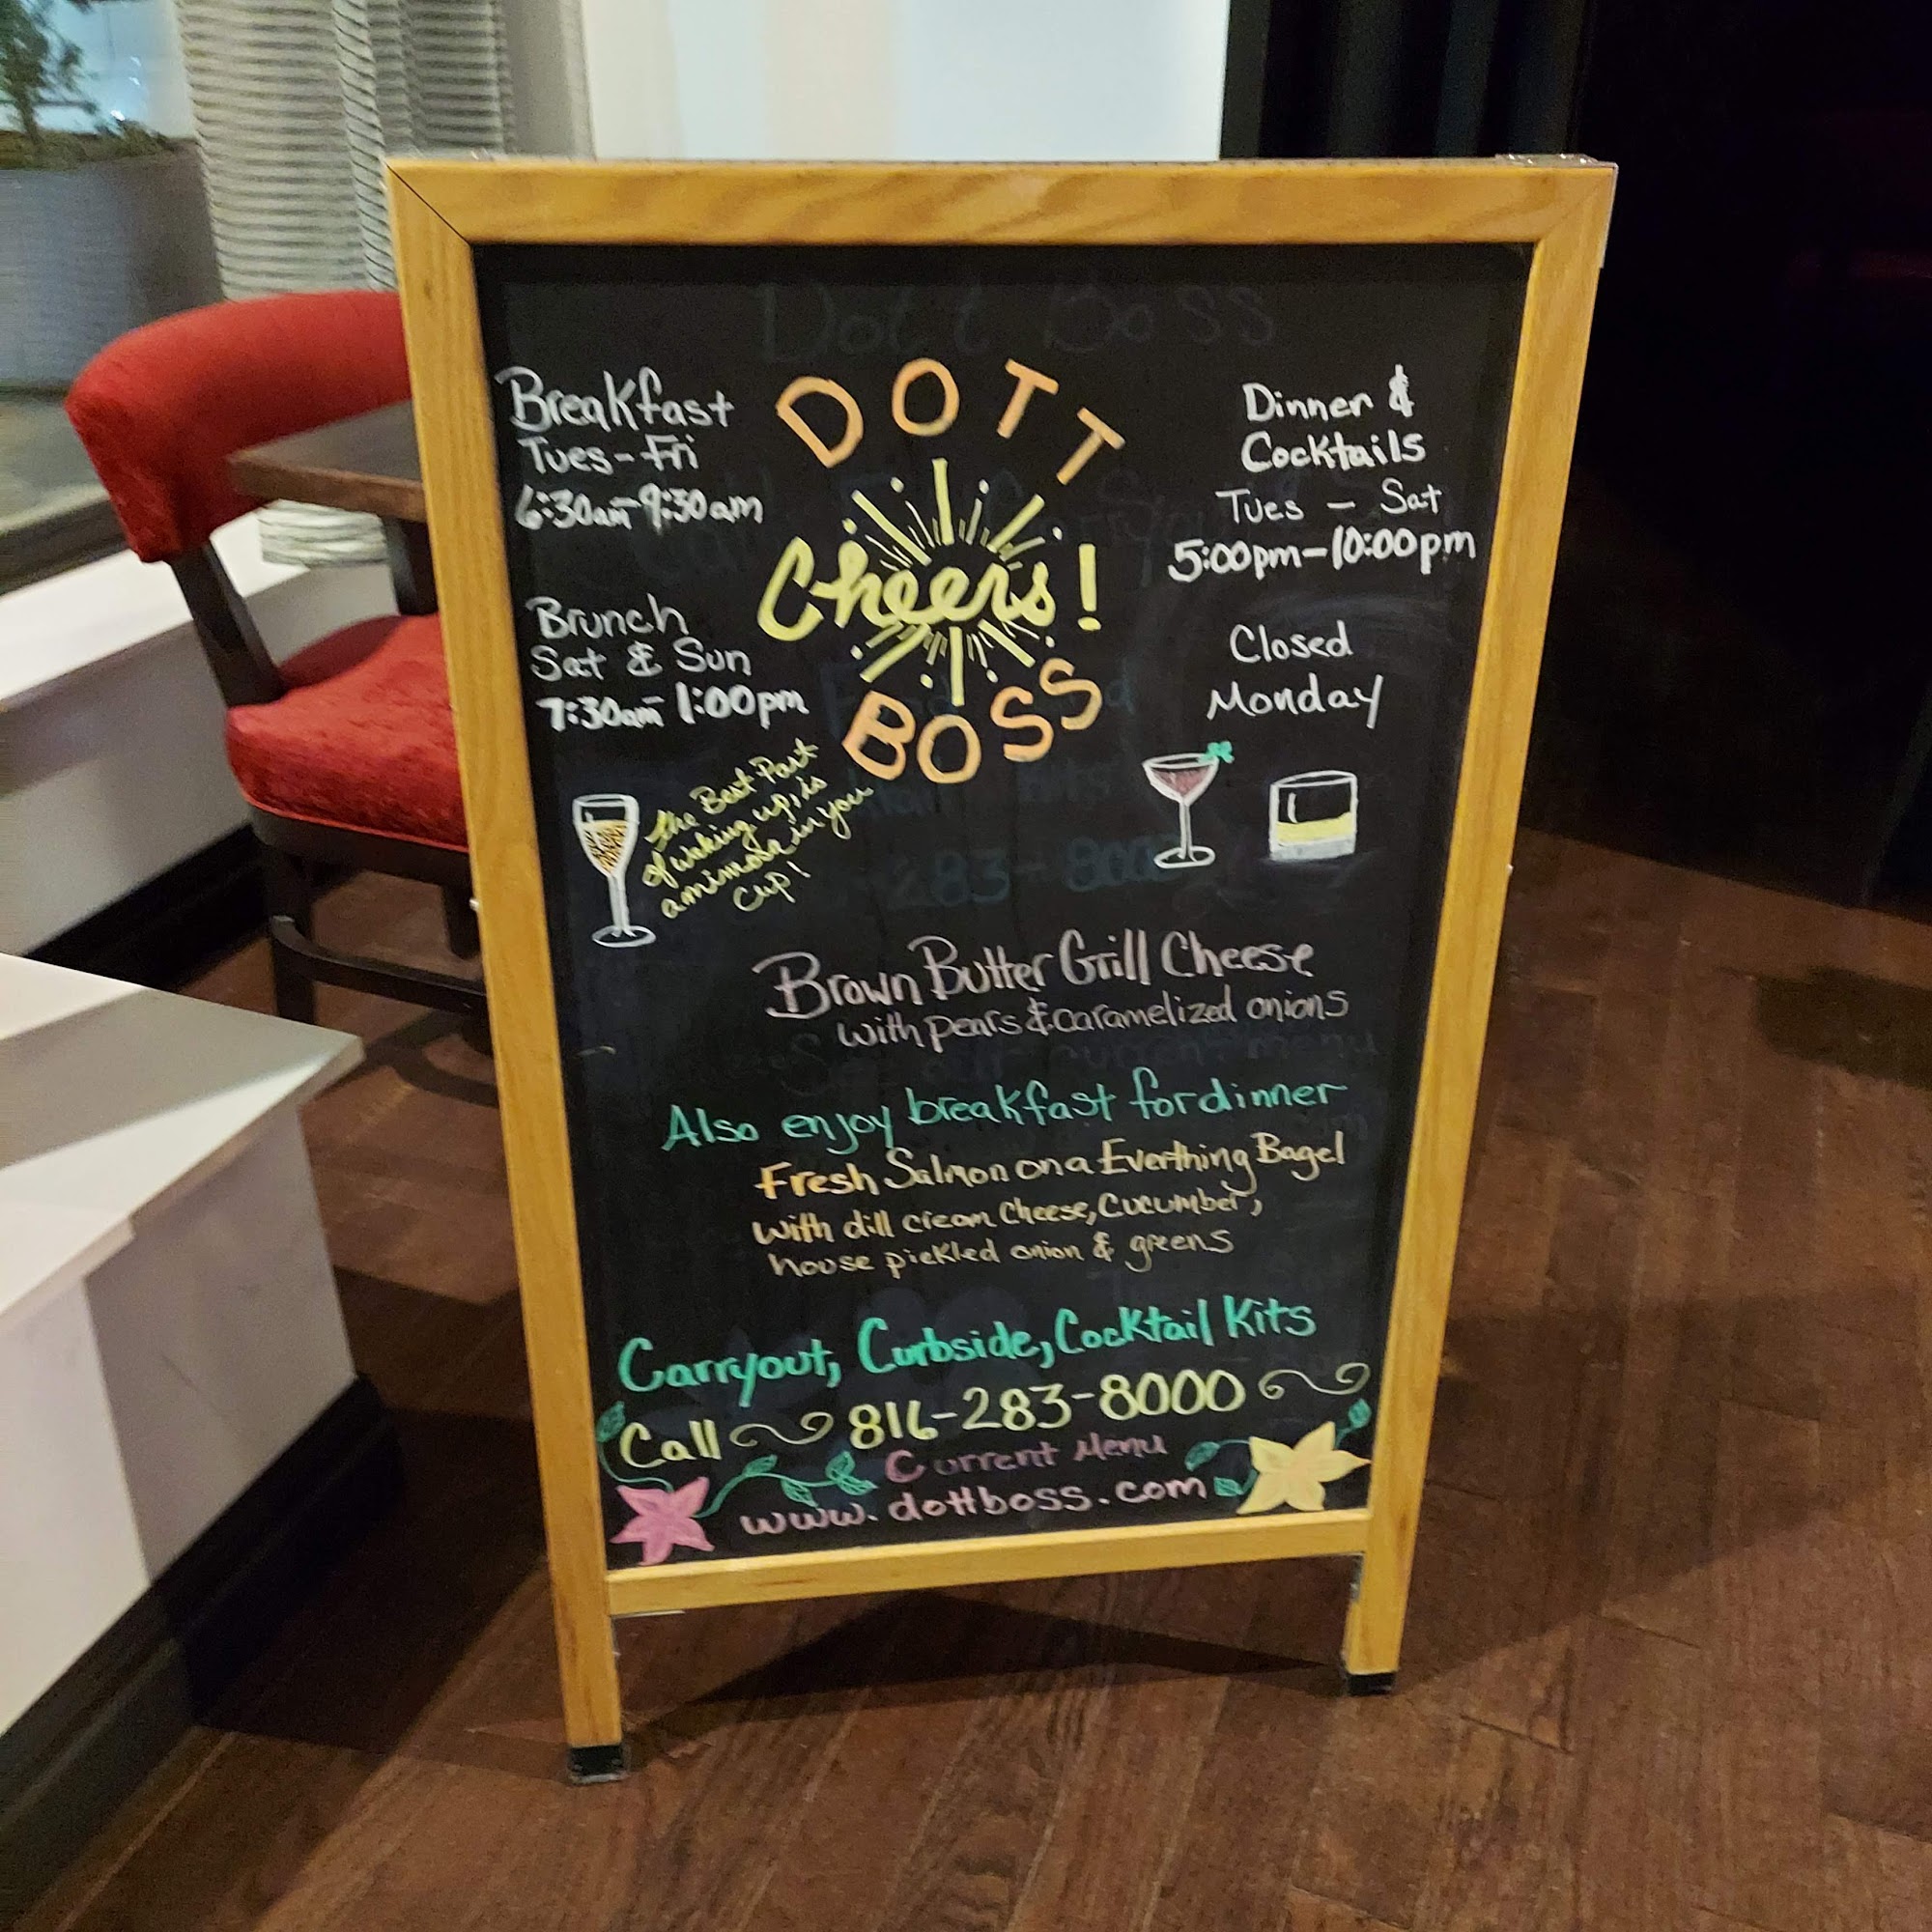 Dott Boss
DOTT
Cheers!
BOSS
Breakfast
Tues-Fri
6:30am-9:30am
Brunch
Sat & Sun
7:30am-1:00pm
Dinner &
Cocktails
Tues - Sat
5:00pm-10:00pm
Closed
Monday
the Best Part
of waking up, is
a mimosa in you
cup!
283-800
Brown Butter Grill Cheese
with pears & caramelized onions
current menu
Also enjoy breakfast for dinner
Fresh Salmon on a Everthing Bagel
with dill cream Cheese, Cucumber,
house pickled onion & greens
Carryout, Curbside, Cocktail Kits
Call 816-283-8000
Current Menu
www.dottboss.com